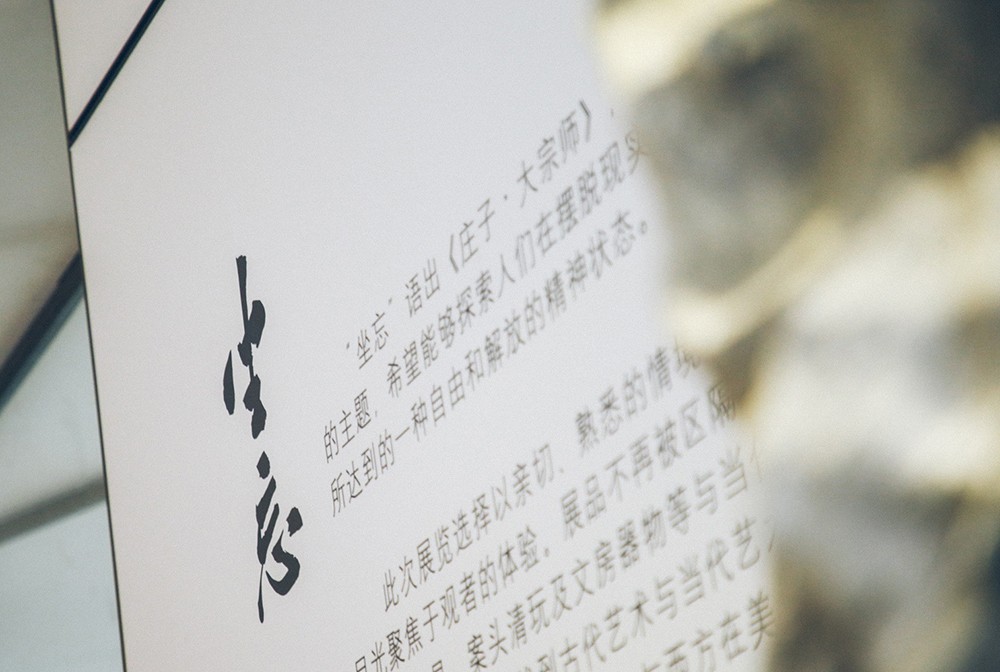 坐忘
“坐忘”语出《庄子·大宗师》，
的主题，希望能够探索人们在摆脱现实
所达到的一种自由和解放的精神状态。
此次展览选择以亲切、熟悉的情境
目光聚焦于观者的体验。展品不再被区隔
案头清玩及文房器物等与当代
到古代艺术与当代艺
西方在美